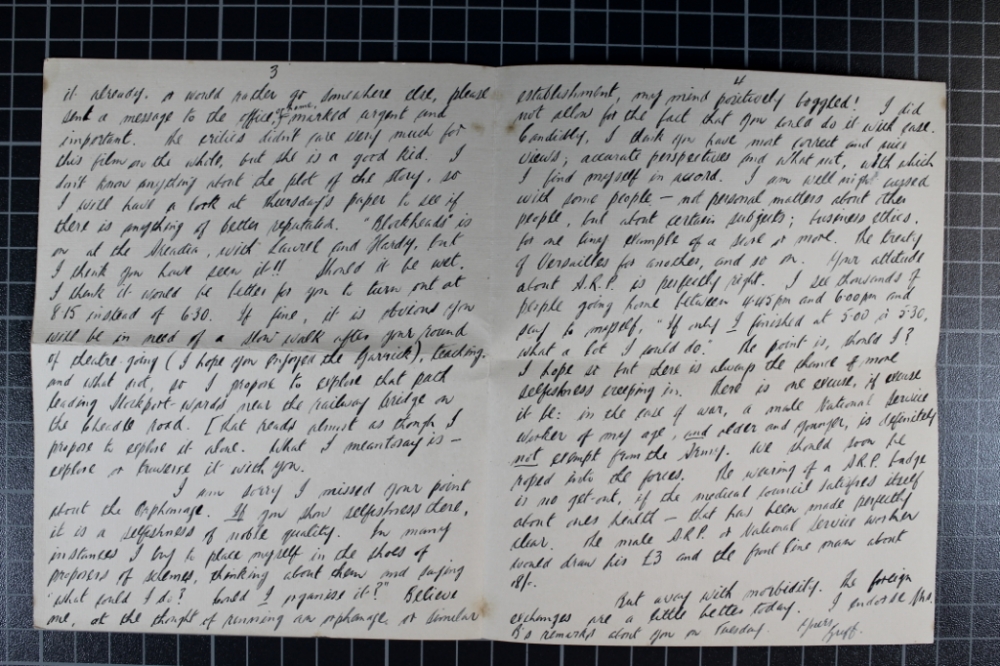 3
it already. or would rather go somewhere else, please
sent a message to the office, or home, marked urgent and
important. The critics didn't care very much for
this film on the whole, but she is a good kid. I
don't know anything about the plot of the story, so
I will have a look at Thursday's paper to see if
there is anything of better reputation. "Blockheads" is
on at the Arcadia, with Laurel and Hardy, but
I think you have seen it!! Should it be wet,
I think it would be better for you to turn out at
8.15 instead of 6.30. If fine, it is obvious you
will be in need of a slow walk after your round
of theatre-going (I hope you enjoyed the Garrick), teaching,
and what not, so I propose to explore that path
leading Stockport-wards near the railway bridge on
the Cheadle road. [That reads almost as though I
propose to explore it alone. What I meantosay is —
explore or traverse it with you.
I am sorry I missed your point
about the Orphanage. If you show selfishness there,
it is a selfishness of noble quality. In many
instances I try to place myself in the shoes of
proposers of schemes, thinking about them and saying
"What could I do? Could I organise it?" Believe
me, at the thought of running an orphanage or similar
4
establishment, my mind positively boggled! I did
not allow for the fact that you could do it with ease.
Candidly, I think you have most correct and nice
views; accurate perspectives and what not, with which
I find myself in accord. I am well nigh cussed
with some people — not personal matters about other
people, but about certain subjects; business ethics,
for one tiny example of a score or more. The treaty
of Versailles for another, and so on. Your attitude
about A.R.P. is perfectly right. I see thousands of
people going home between 4.45pm and 6.00pm and
say to myself, "If only I finished at 5.00 or 5.30,
what a lot I could do." The point is, should I?
I hope so but there is always the chance of more
selfishness creeping in. There is one excuse, if excuse
it be: in the case of war, a male National Service
worker of my age, and older and younger, is definitely
not exempt from the Army. We should soon be
roped into the forces. The wearing of a A.R.P. badge
is no get-out, if the medical council satisfies itself
about ones health — that has been made perfectly
clear. The male A.R.P. or National Service worker
would draw his £3 and the front line man about
18/-.
But away with morbidity. The foreign
exchanges are a little better today. I endorse Mrs.
B's remarks about you on Tuesday. Yours